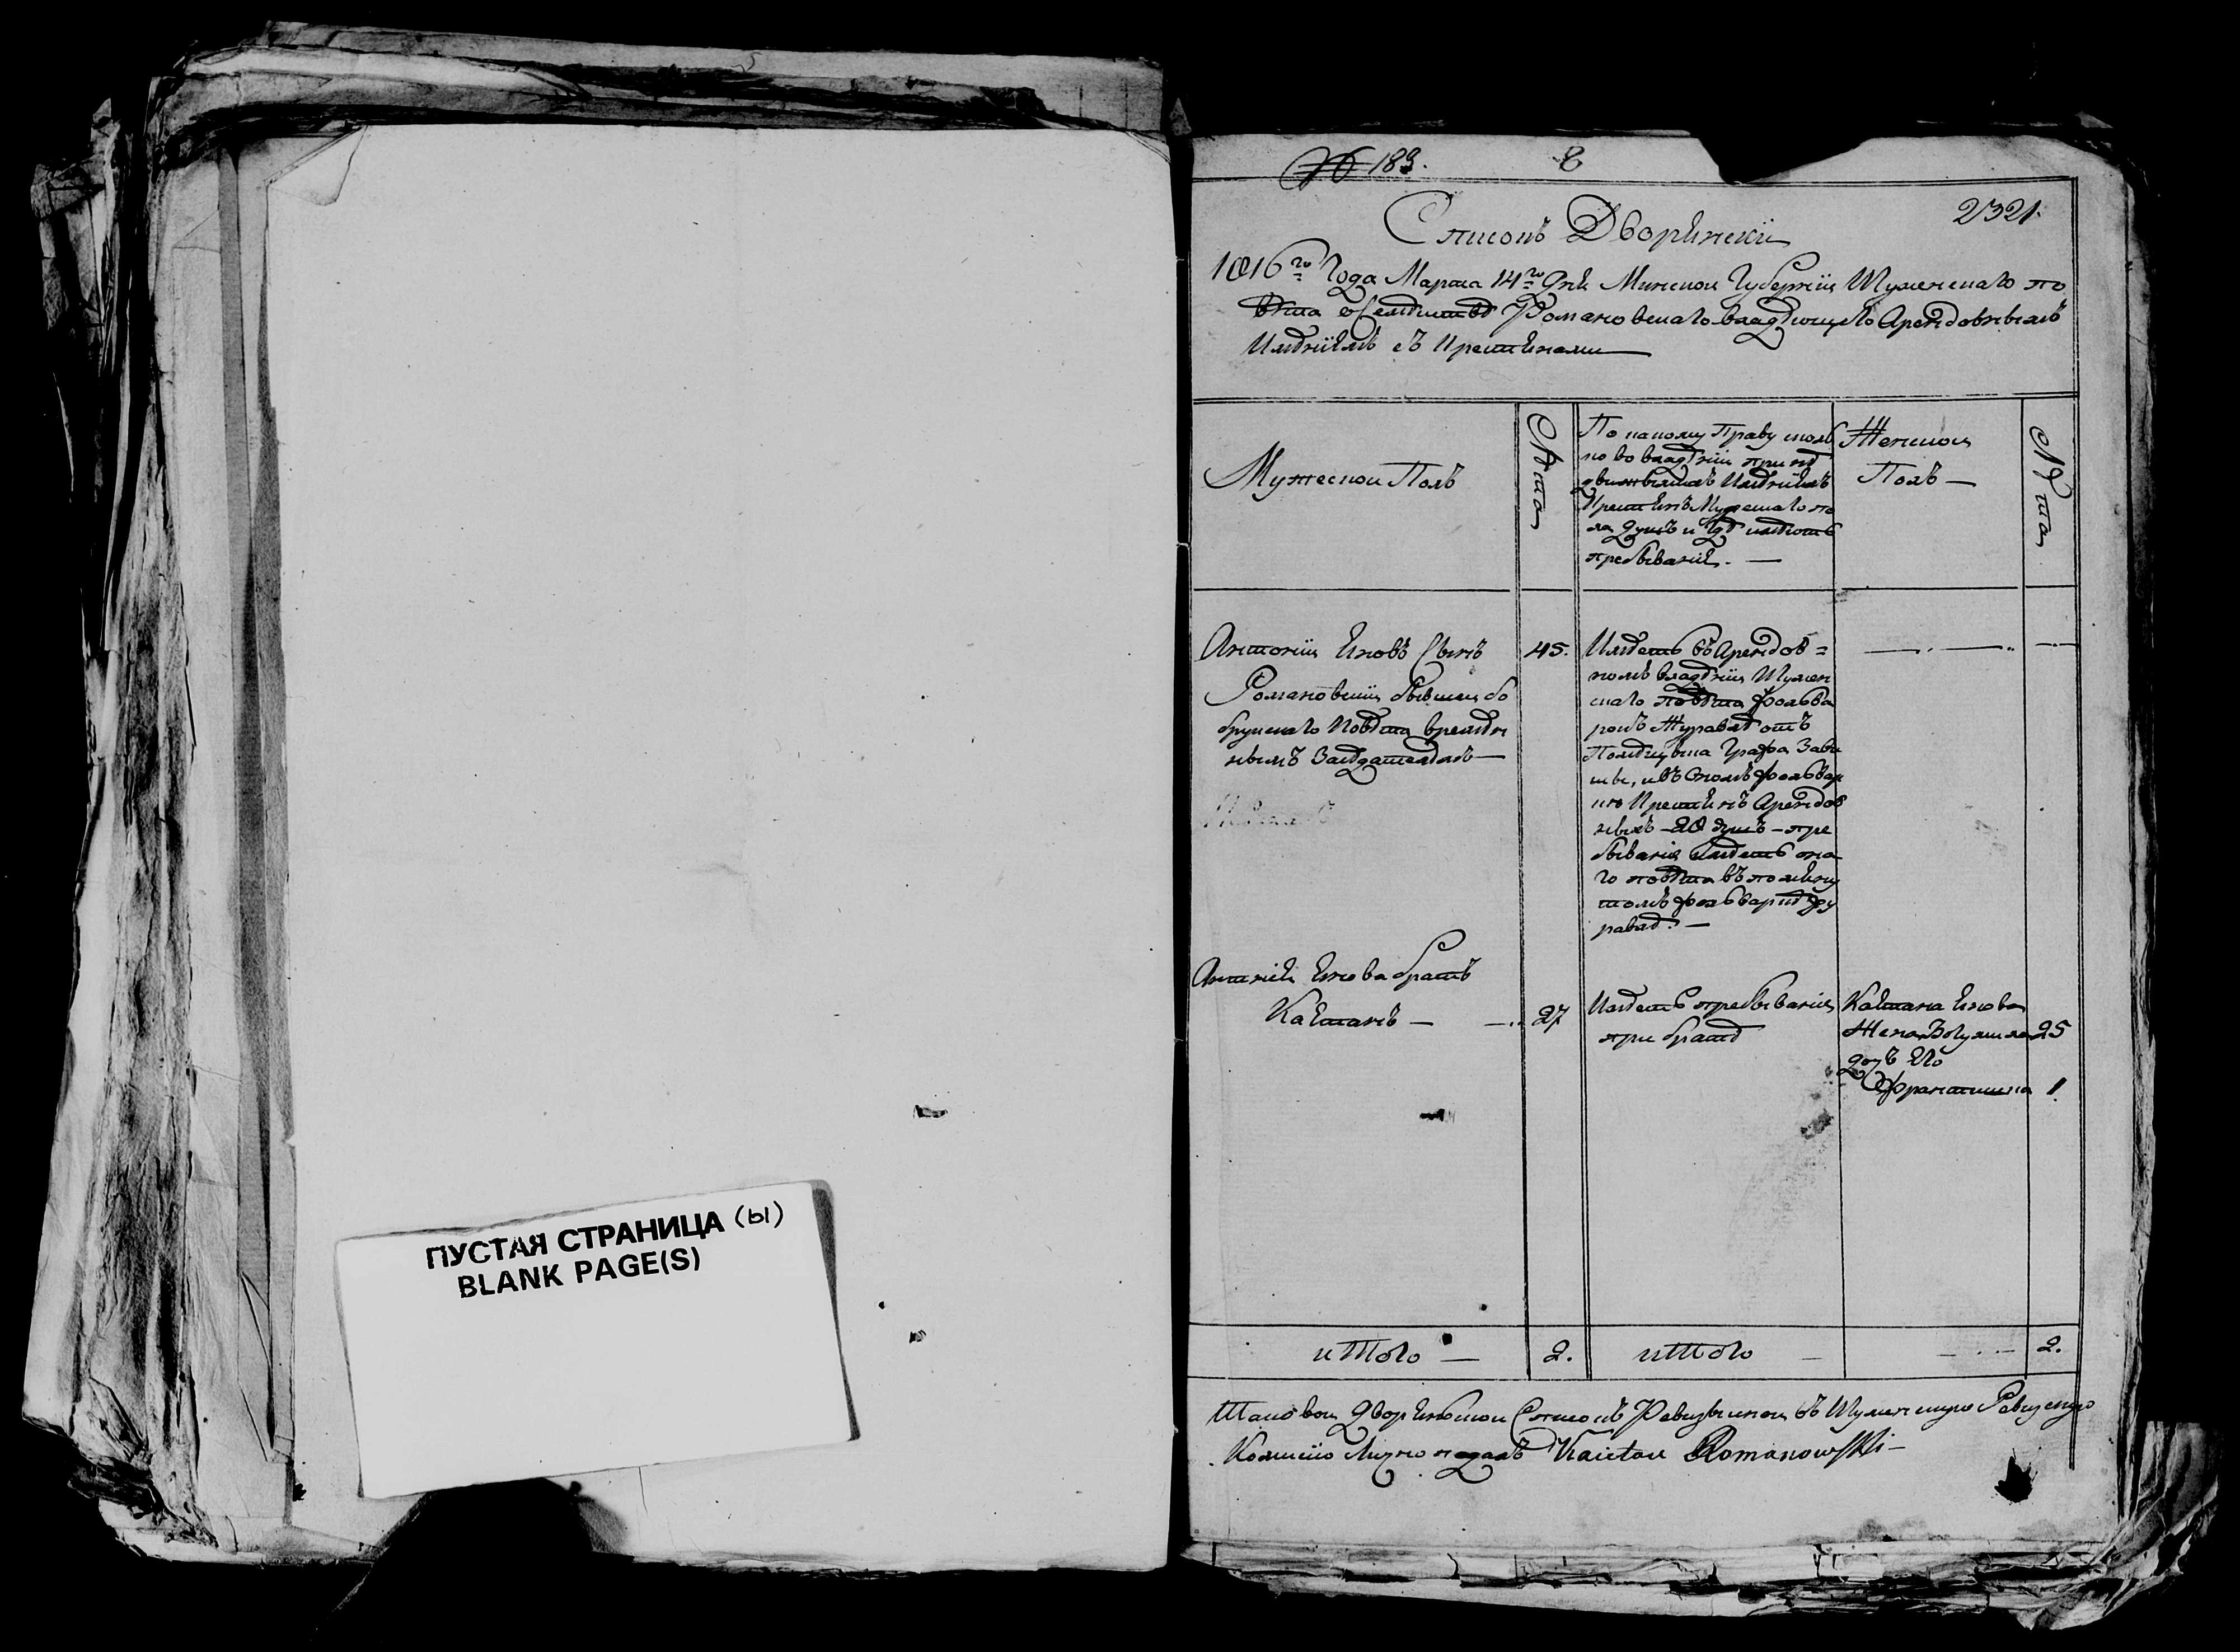 ПУСТАЯ СТРАНИЦА (ы)
BLANK PAGE(S)
№ 189.
2321.
Списокъ Дворянскій
1816го Года Марта 14го Дня Минской Губерніи Игуменскаго по
вѣта о Семѣйствѣ Романовскаго владеющего Арендовнымъ
Имѣніемъ съ Крестянами
Мужеской Полъ
Лѣта
По какому Праву сколь
ко во владѣніи при не
движимымъ Имѣніемъ
Крестянъ Мужескаго по
ла душъ и гдѣ имѣютъ
пребываніе. —
Женской
Полъ —
Лѣта
Антоній Яновъ Сынъ
Романовскій бывшей бо
бруйскаго Повѣта времѣн
нымъ Засѣдателѣмъ —
45.
Имѣетъ въ Арендов=
номъ владѣніи Игумен
скаго повѣта фольва
рокъ Журавѣ отъ
Помѣщика Графа Зави
ши, и въ томъ фольвар
ку Крестянъ Арендов
ныхъ — 20 душъ — пре
бываніе имѣетъ она
го повѣта въ помяну
томъ фольваркѣ Жу
равѣ. —
Антонія Янова братъ
Каэтанъ —
27
Имѣетъ пребываніе
при братѣ
Каэтана Янова
Жена Богумила 25
дочь Его
Франтишка 1.
итого —
2.
итого —
2.
Таковой дворянской Списокъ Ревизской въ Игуменскую Ревизскую
Комисію Лично подалъ Kaietan Romanowski —